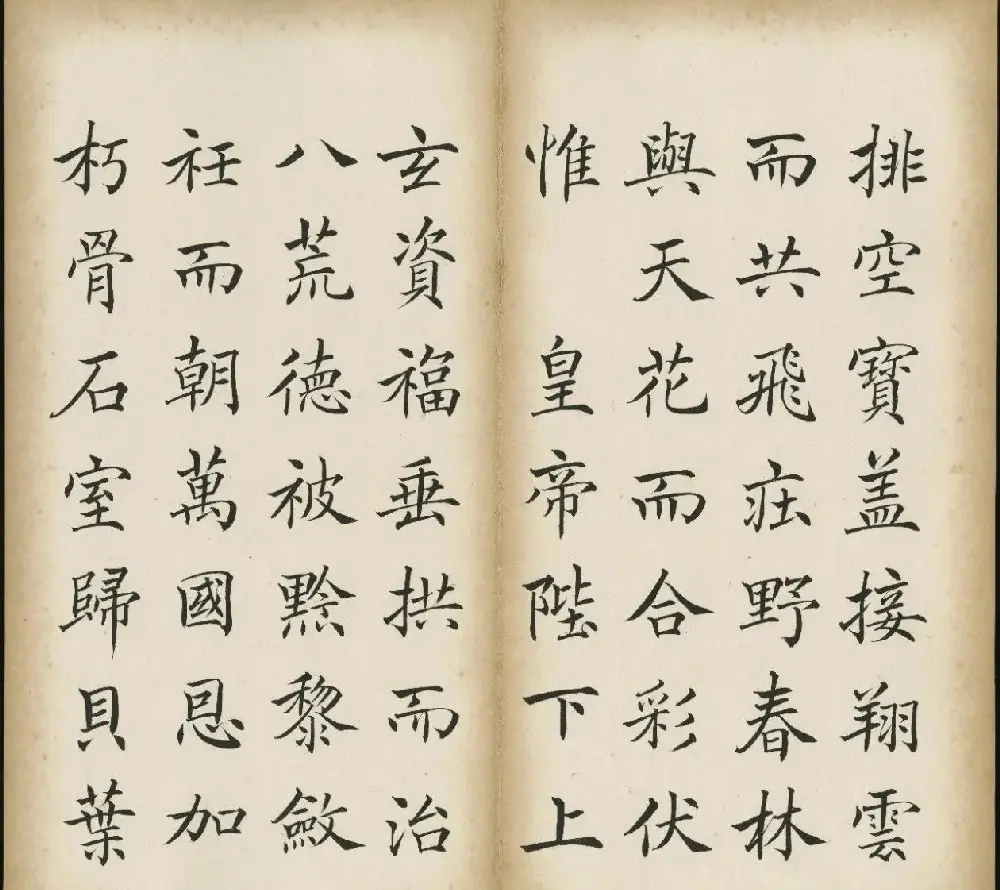 排空寶盖接翔雲
而共飛庄野春林
與天花而合彩伏
惟 皇帝陛下上
玄資福垂拱而治
八荒德被黔黎斂
衽而朝萬國恩加
朽骨石室歸貝葉